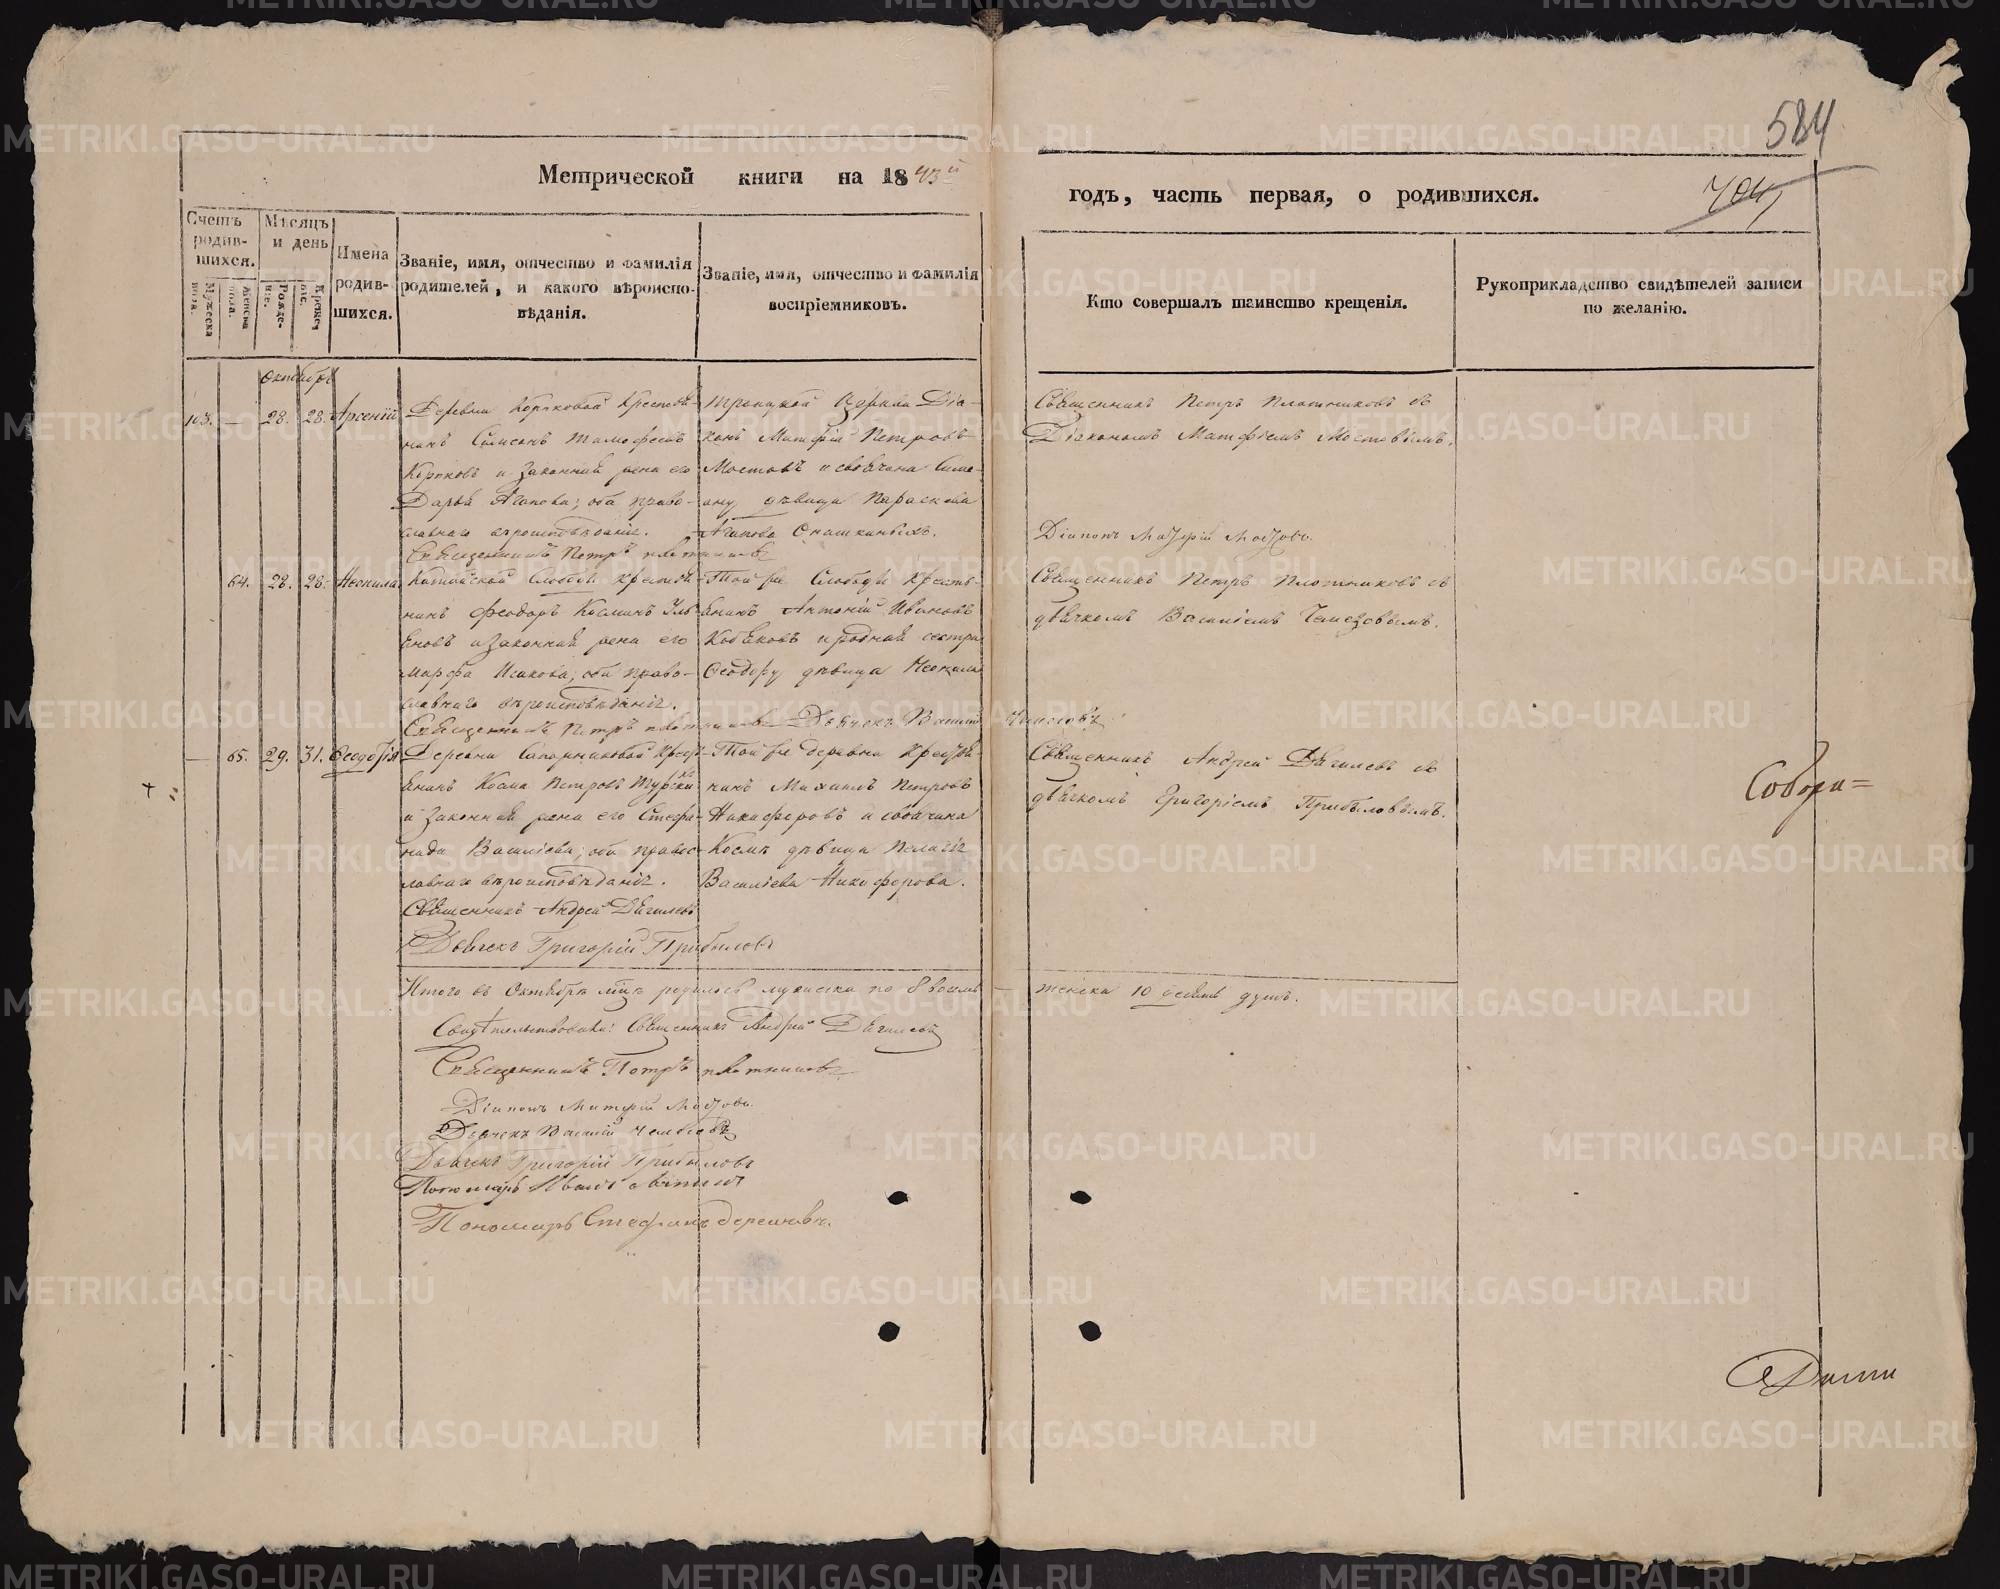 584
704
Метрической книги на 1843й
годъ, часть первая, о родившихся.
Счетъ родив-шихся.
Мужеска пола.
Женска пола.
Мѣсяцъ и день
Рожде-нiе.
Креще-нiе.
Имена родив-шихся.
Званiе, имя, отчество и фамилiя
родителей, и какого вѣроиспо-
вѣданiя.
Званiе, имя, отчество и фамилiя
воспрiемниковъ.
Кто совершалъ таинство крещенiя.
Рукоприкладство свидѣтелей записи
по желанiю.
Октябрь
103. — 28. 28. Арсенiй
Деревни Коряковой крестья-
нинъ Симеонъ Тимофеевъ
Коряковъ и законная жена его
Дарья Агапова; оба право-
славнаго вѣроисповѣданiя.
Священникъ Петръ Плотниковъ
Троицкой Церкви Дiа-
конъ Матфiй Петровъ
Мостовъ и своячина Симе-
ону дѣвица Параскева
Агапова
Священникъ Петръ Плотниковъ съ
Дiакономъ Матфiемъ Мостовымъ.
Дiаконъ Матфiй Мостовъ.
64. 28. 28. Неонила
Слободы крестья-
нинъ Феодоръ Козминъ Уль-
яновъ и законная жена его
Марфа Исакова; оба право-
славнаго вѣроисповѣданiя.
Священникъ Петръ Плотниковъ Дьячекъ Василiй
Той же Слободы кресть-
янинъ Антонiй Ивановъ
Кобяковъ и родная сестра
Феодору дѣвица Неонила
Священникъ Петръ Плотниковъ съ
дьячкомъ Василiемъ
— 65. 29. 31. Феодосiя
Деревни крест-
янинъ Козма Петровъ
и законная жена его Стефа-
нида Василiева; оба правос-
лавнаго вѣроисповѣданiя.
Священникъ Андрей Дягилевъ
Дьячекъ Григорiй Прибыловъ
Той же деревни крестья-
нинъ Михаилъ Петровъ
Никифоровъ и своячина
Козмѣ дѣвица Пелагiя
Василiева Никифорова.
Священникъ Андрей Дягилевъ съ
дьячкомъ Григорiемъ Прибыловымъ.
Собора=
Итого въ Октябрѣ мцѣ родилось мужеска по 8 восмь
— женска 10 десять душъ.
Свидѣтельствовали: Священникъ Андрей Дягилевъ
Священникъ Петръ Плотниковъ
Дiаконъ Матфiй Мостовъ.
Дьячекъ Василiй
Дьячекъ Григорiй Прибыловъ
Пономарь Иванъ
Пономарь Стефанъ